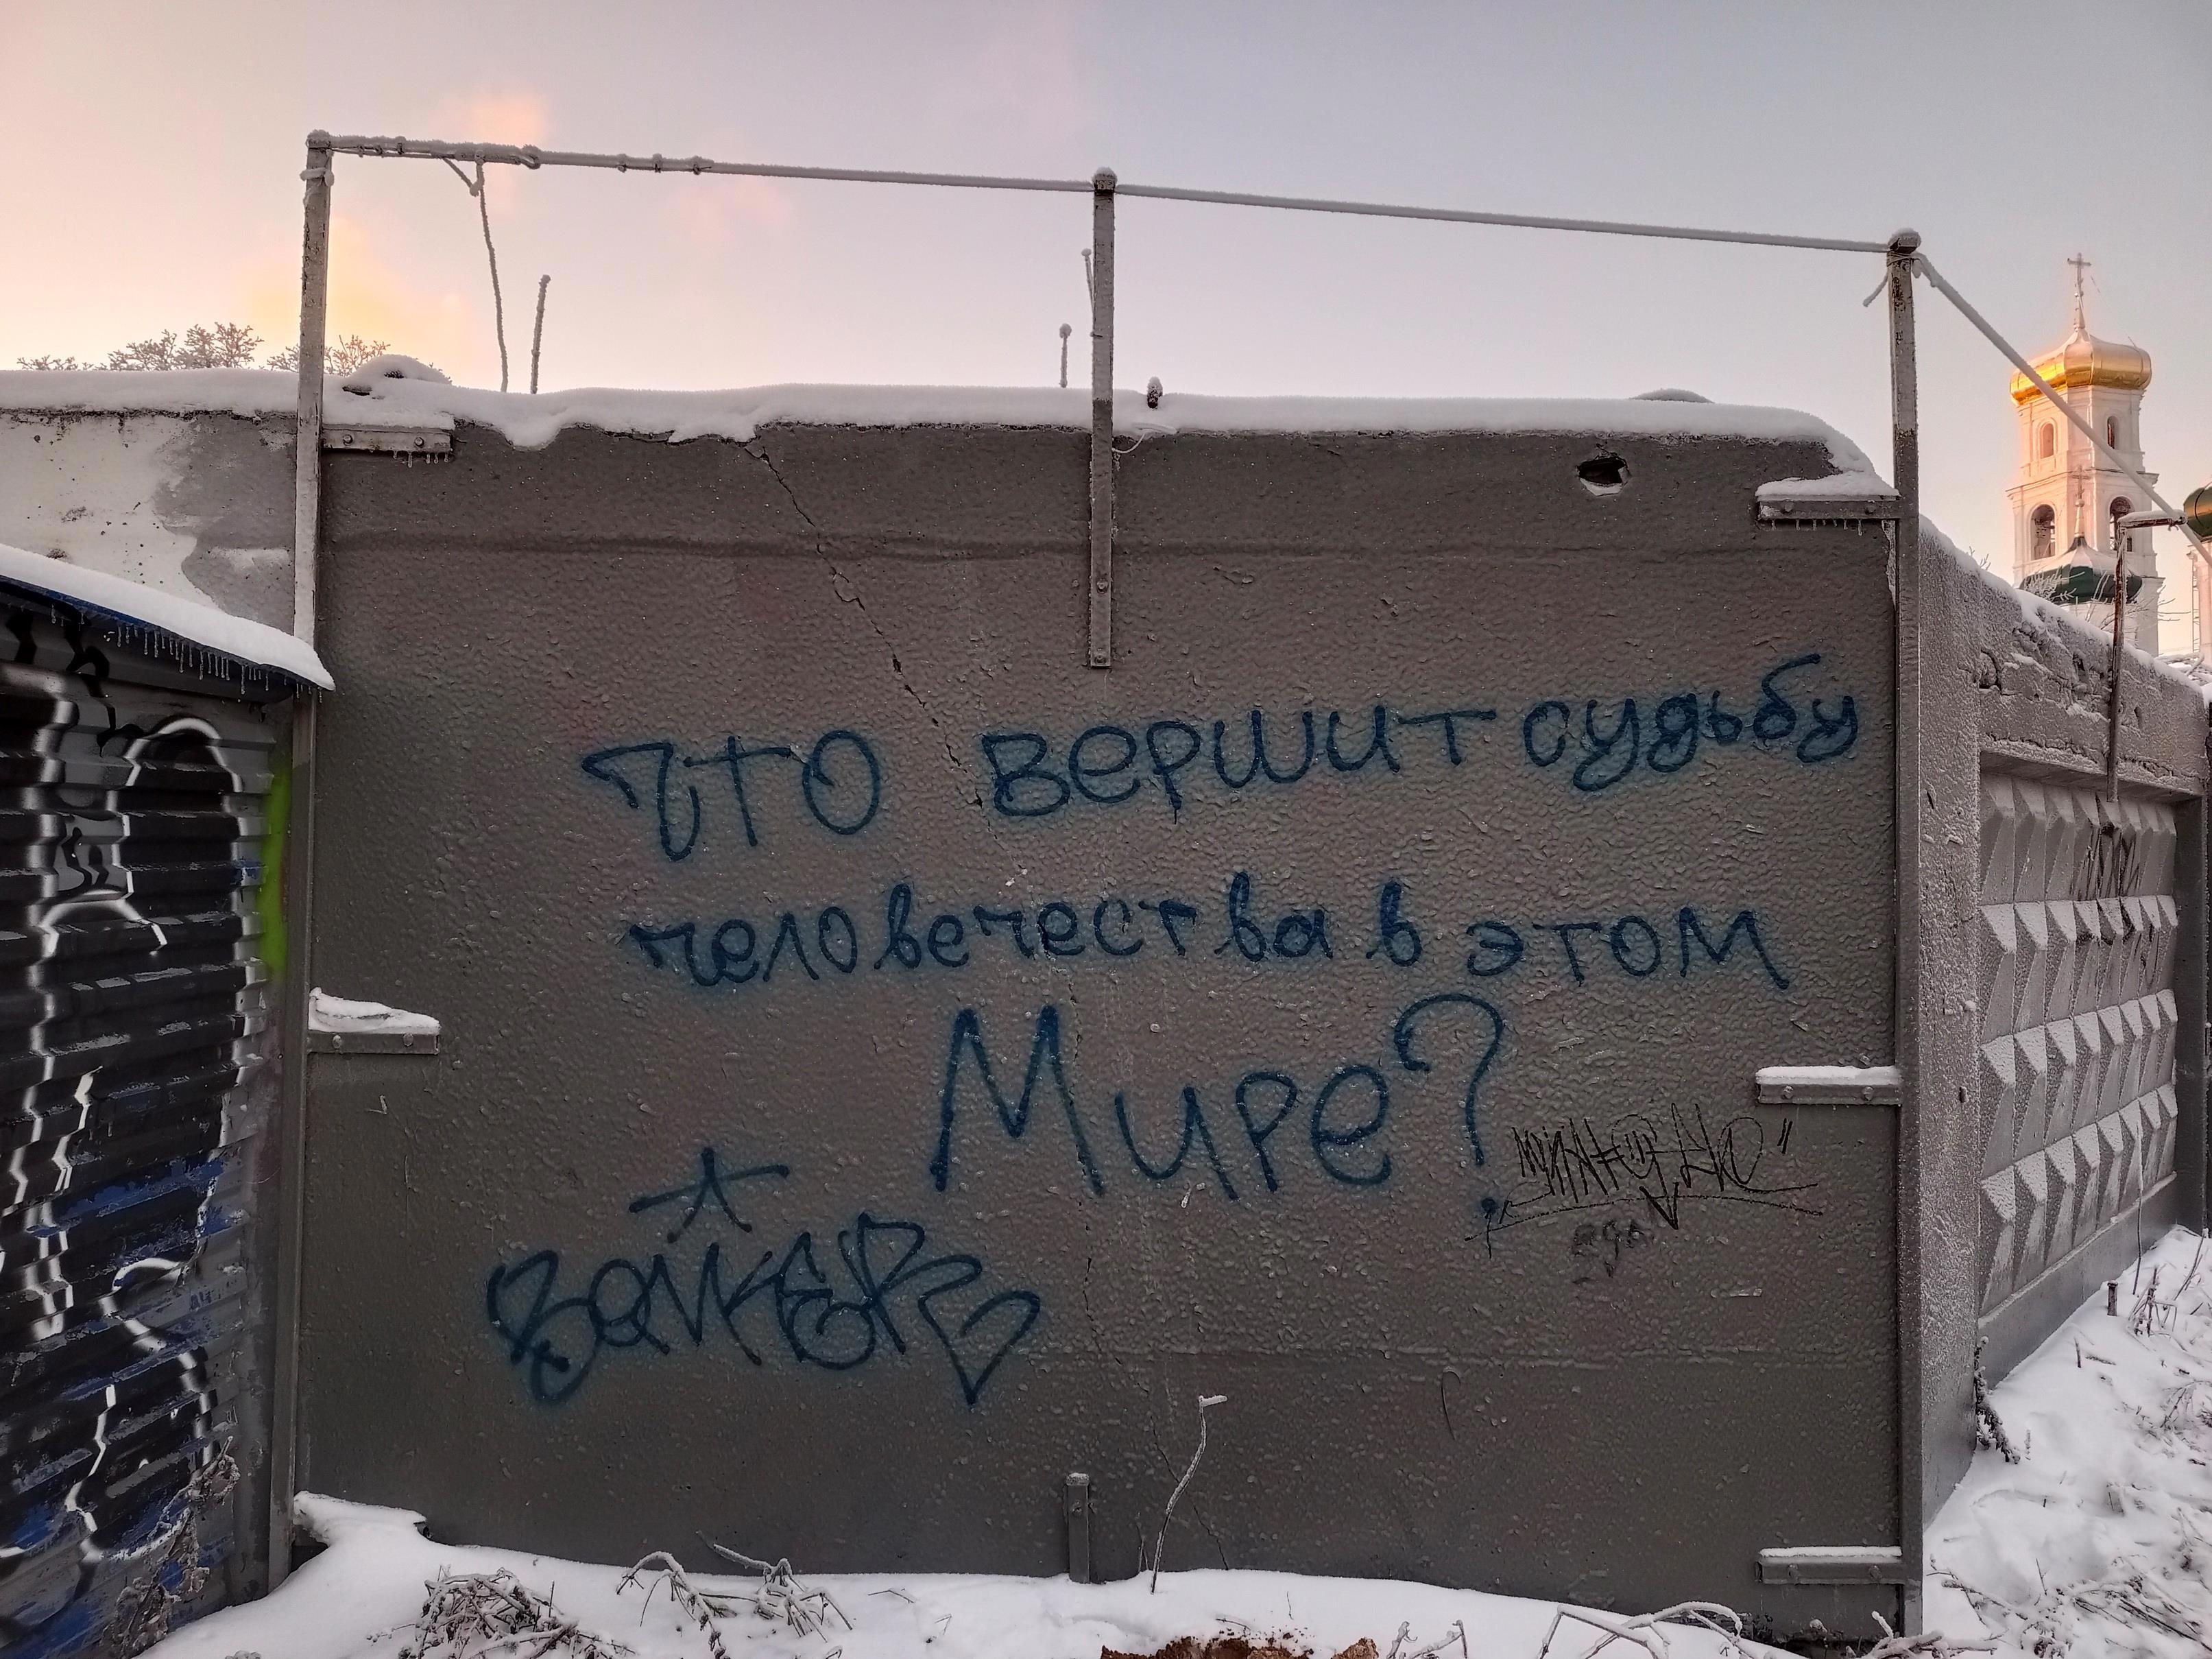 Что вершит судьбу
человечества в этом
Мире?